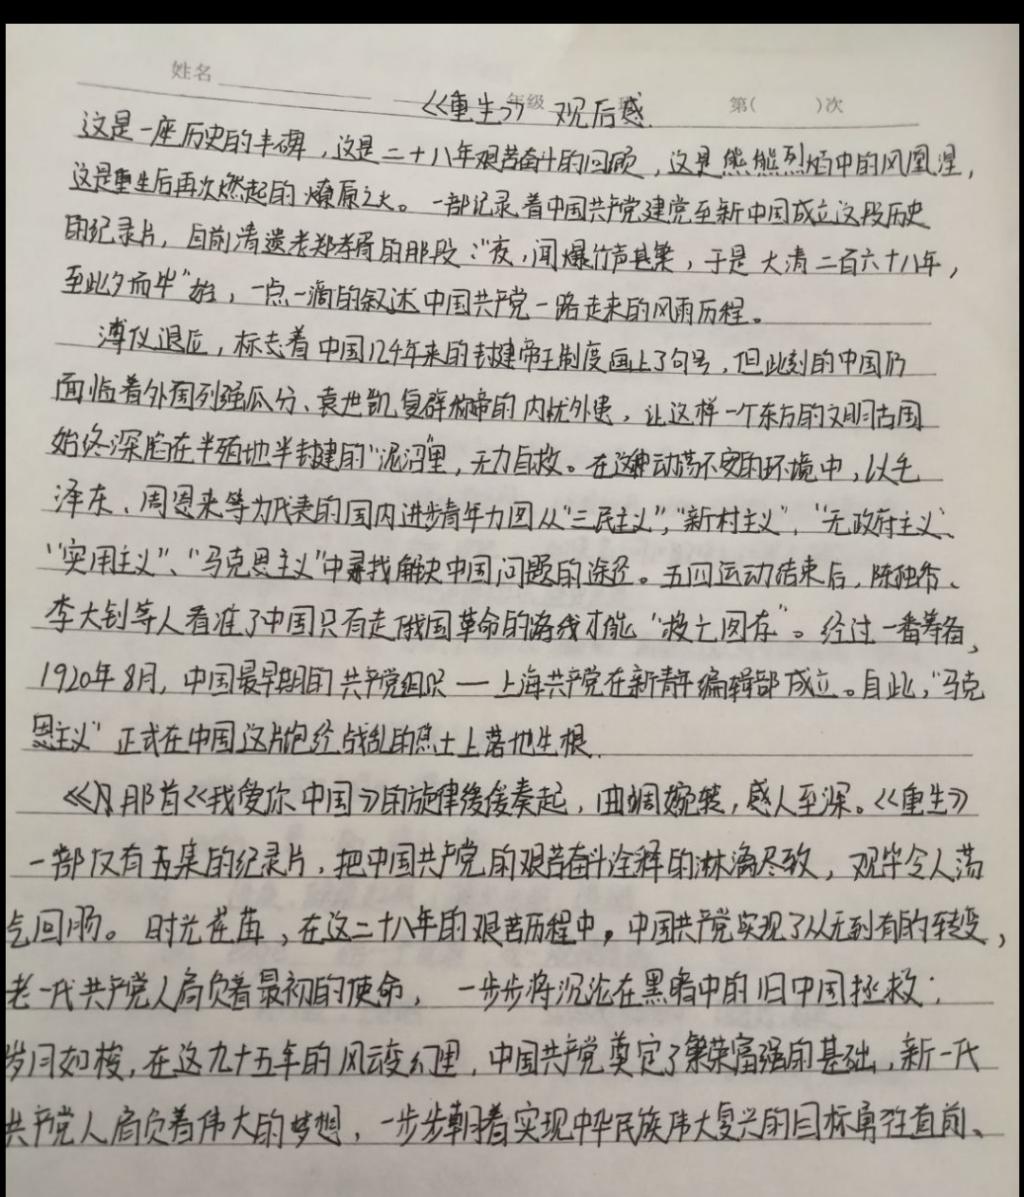 姓名 年级 第( )次
《《重生》》观后感.
这是一座历史的丰碑，这是二十八年艰苦奋斗的回顾，这是熊熊烈焰中的凤凰涅，
这是重生后再次燃起的燎原之火。一部记录着中国共产党建党至新中国成立这段历史
的纪录片，自前清遗老郑孝胥的那段："夜，闻爆竹声甚繁，于是大清二百六十八年，
至此夕而毕"始，一点一滴的叙述中国共产党一路走来的风雨历程。
溥仪退位，标志着中国几千年来的封建帝王制度画上了句号，但此刻的中国仍
面临着外国列强瓜分、袁世凯复辟称帝的内忧外患，让这样一个东方的文明古国
始终深陷在半殖地半封建的"泥沼"里，无力自救。在这种动荡不安的环境中，以毛
泽东、周恩来等为代表的国内进步青年力图从"三民主义"，"新村主义"，"无政府主义、
"实用主义"、"马克思主义"中寻找解决中国问题的途径。五四运动结束后，陈独秀、
李大钊等人看准了中国只有走俄国革命的路线才能"救亡图存"。经过一番筹备，
1920年8月，中国最早期的共产党组织—上海共产党在新青年编辑部成立。自此，"马克
思主义"正式在中国这片饱经战乱的热土上落地生根.
《那首《我爱你中国》的旋律缓缓奏起，曲调婉转，感人至深。《重生》
一部仅有五集的纪录片，把中国共产党的艰苦奋斗诠释的淋漓尽致，观毕令人荡
气回肠。时光荏苒，在这二十八年的艰苦历程中，中国共产党实现了从无到有的转变，
老一代共产党人肩负着最初的使命，一步步将沉沦在黑暗中的旧中国拯救；
岁月如梭，在这九十五年的风云变幻里，中国共产党奠定了繁荣富强的基础，新一代
共产党人肩负着伟大的梦想，一步步朝着实现中华民族伟大复兴的目标勇往直前、